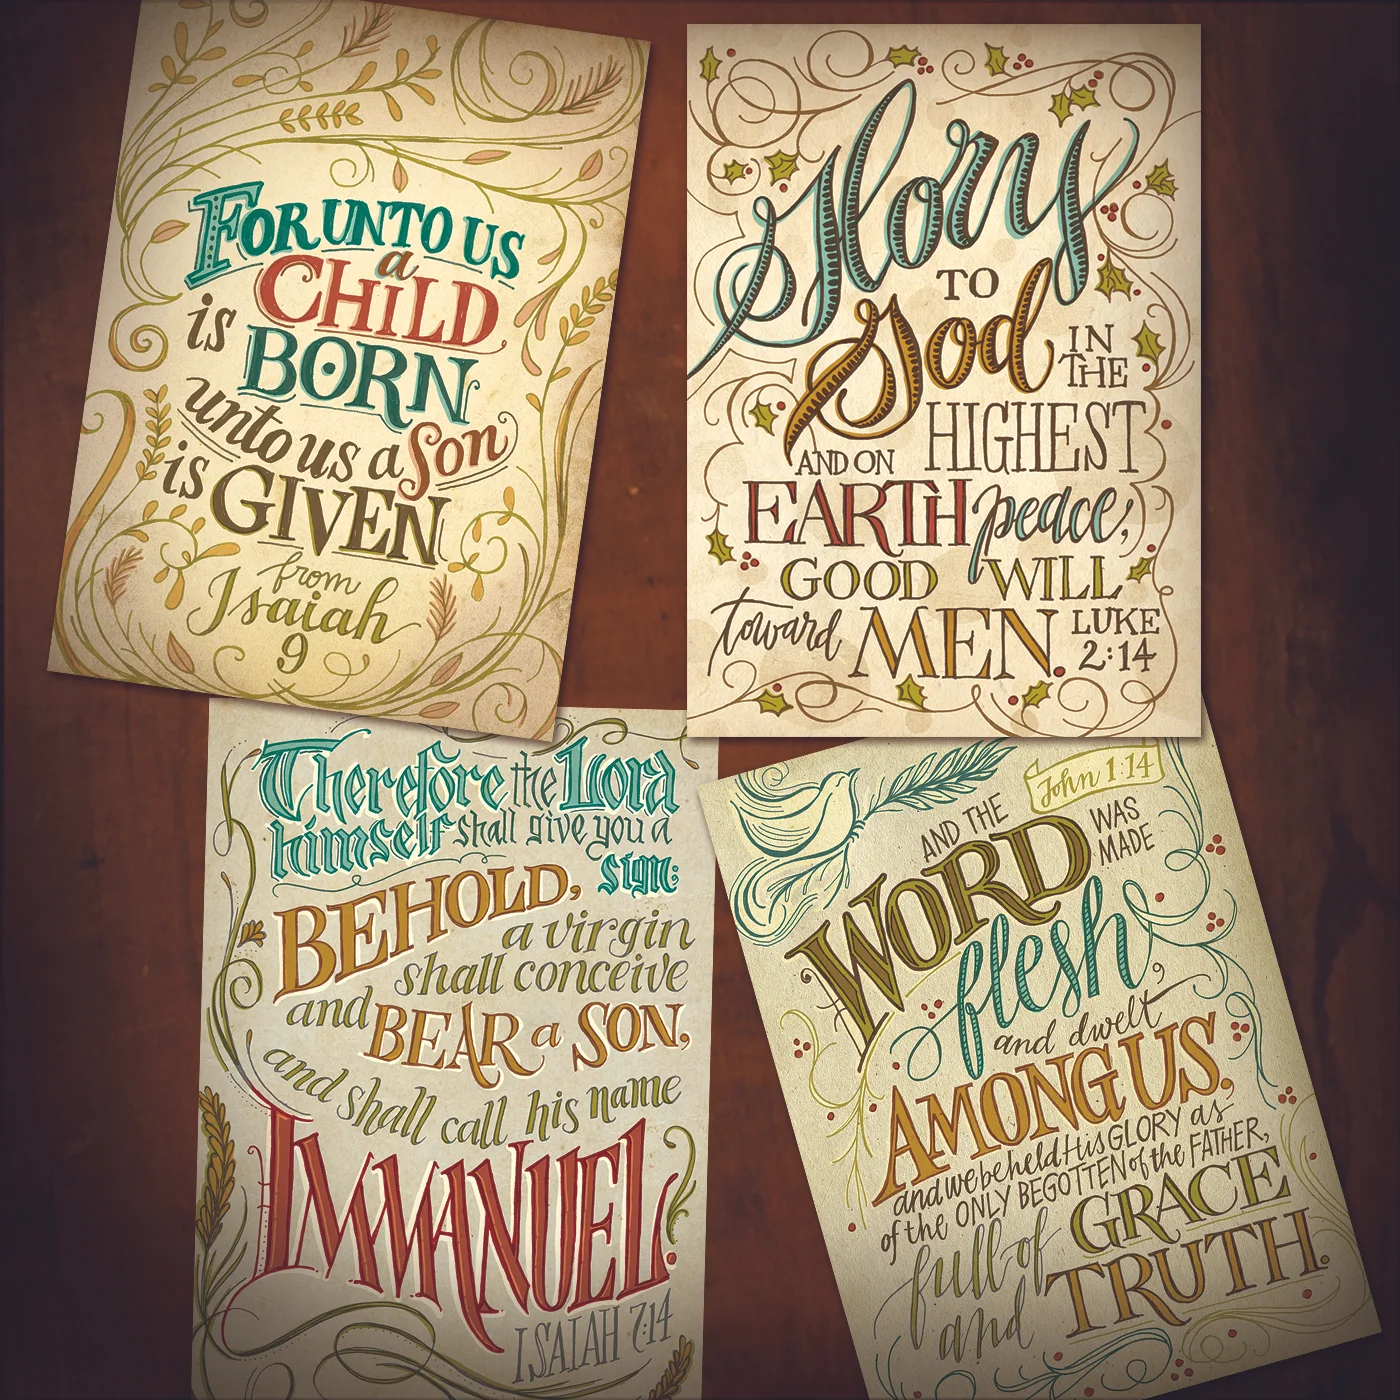 FOR UNTO US
a
CHiLD
is BORN
unto us a Son
is GIVEN
from
Isaiah
9
Glory
TO
God IN
THE
HIGHEST
AND ON
EARTH peace,
GOOD WILL
toward MEN. LUKE
2:14
Therefore the Lord
himself shall give you a
sign:
BEHOLD,
a virgin
shall conceive
and BEAR a SON,
and shall call his name
IMMANUEL.
ISAIAH 7:14
John 1:14
AND THE
WORD WAS
MADE
flesh
and dwelt
AMONG US,
and we beheld His GLORY as
of the ONLY BEGOTTEN of the FATHER,
full of GRACE
and TRUTH.